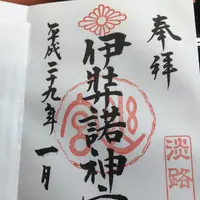 奉拝
伊弉諾神宮
平成二十九年一月
淡路